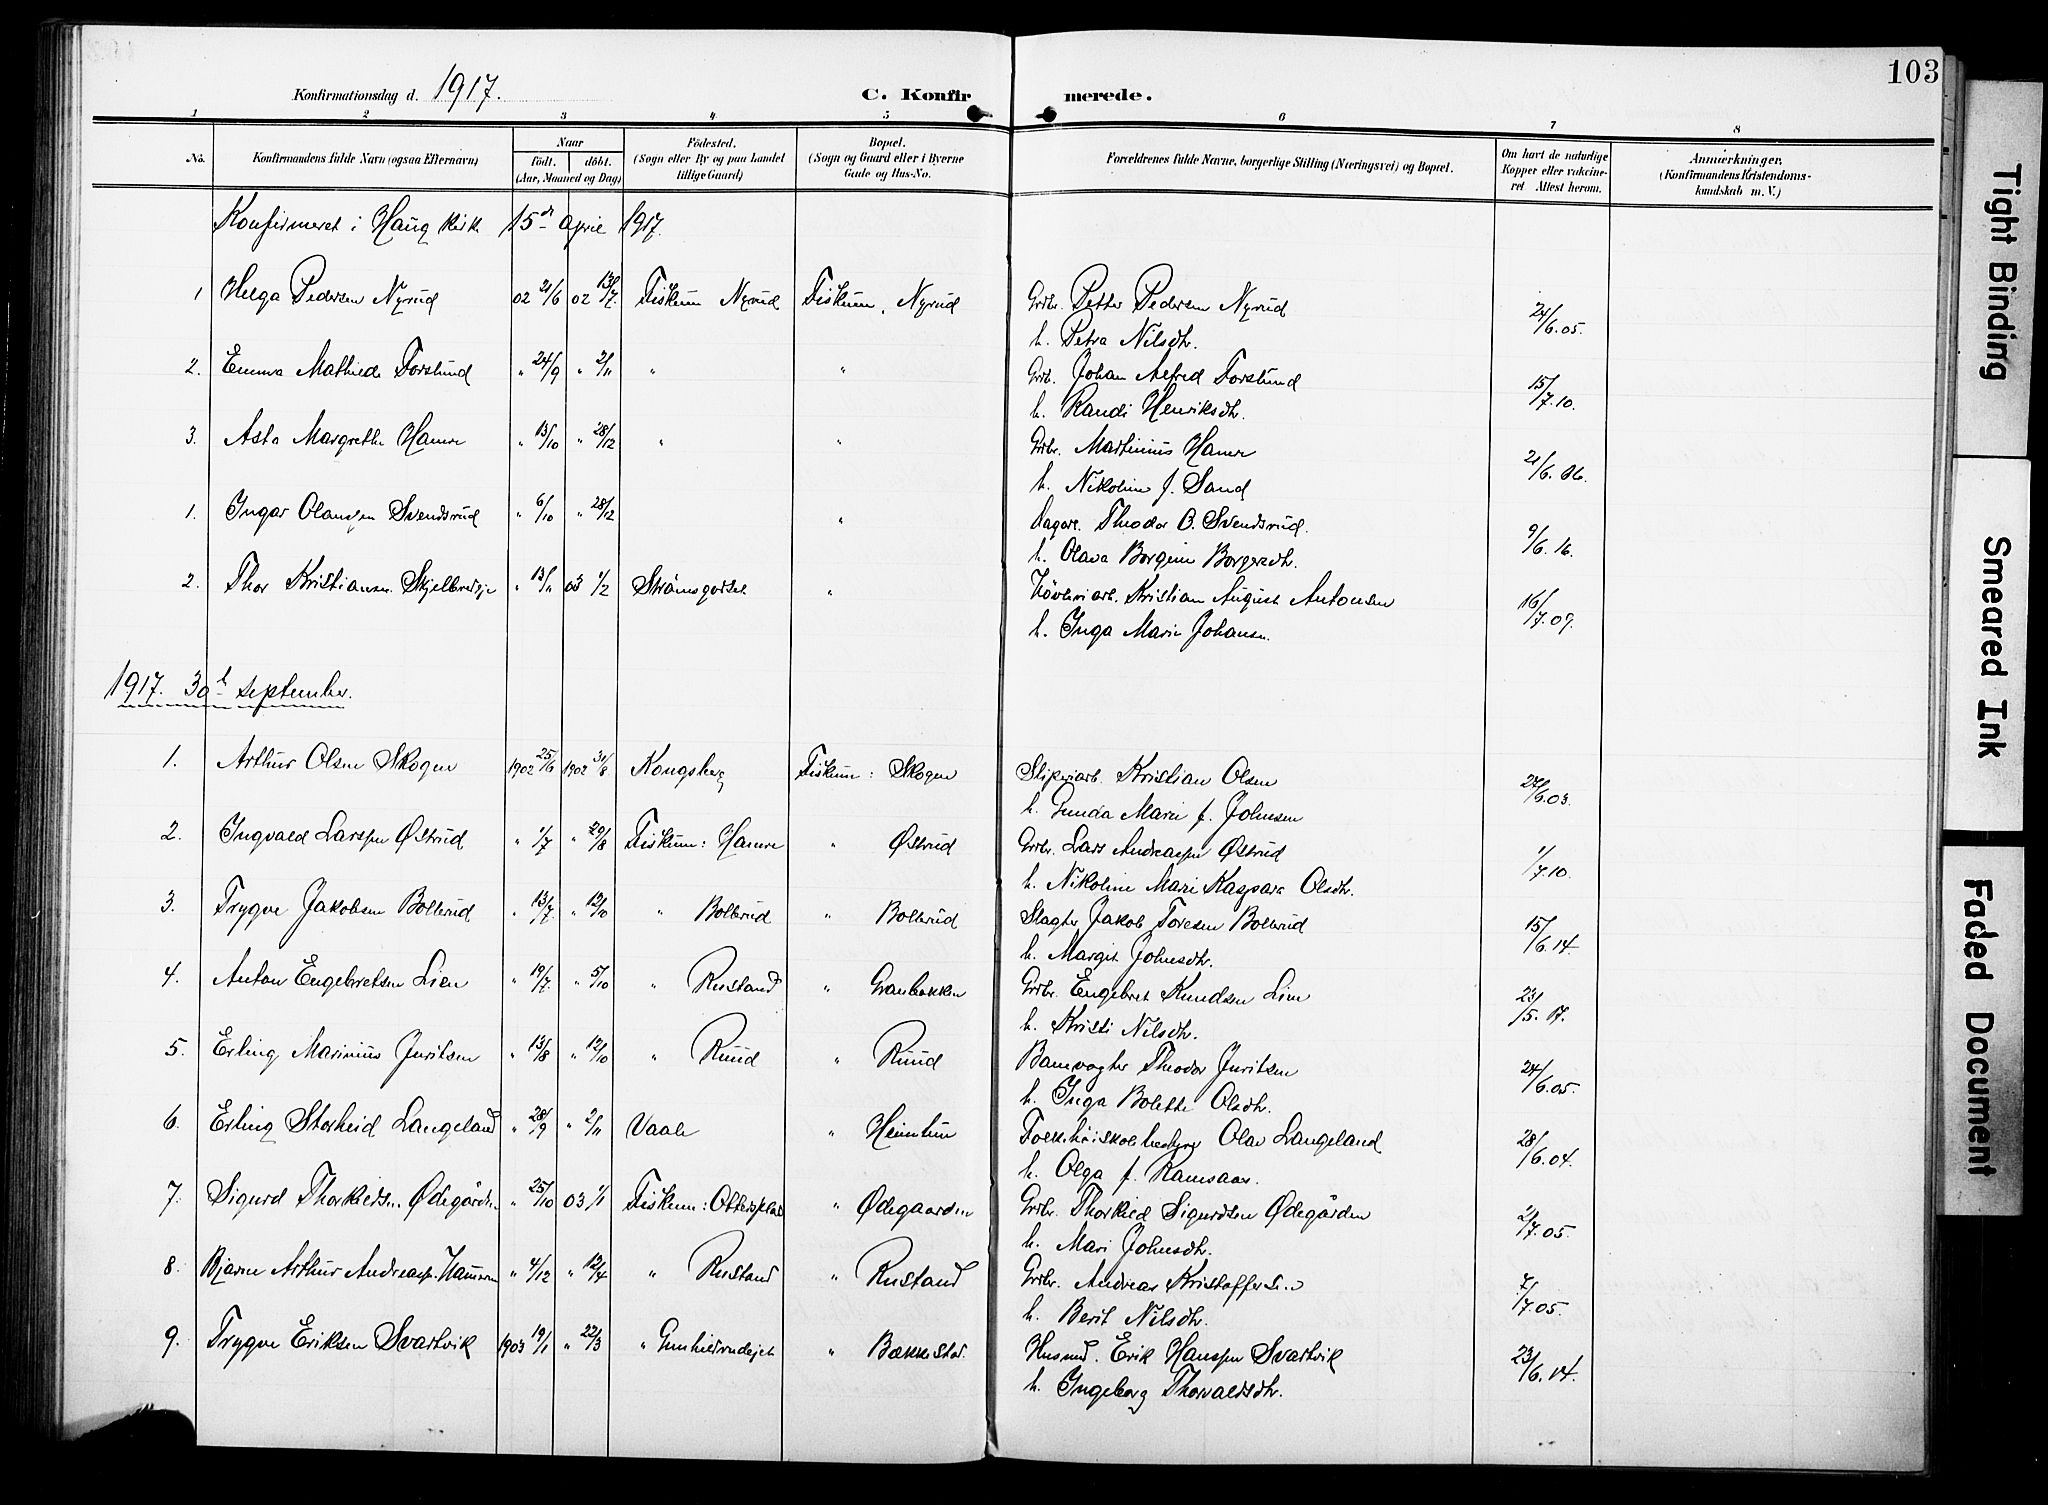 103
Konfirmationsdag d. 1917.
C. Konfirmerede.
1 2 3 4 5 6 7 8
No. Konfirmandens fulde Navn (ogsaa Efternavn) Naar født. døbt. (Aar, Maaned og Dag) Fødested. (Sogn eller By og paa Landet tillige Gaard) Bopæl. (Sogn og Gaard eller i Byerne Gade og Hus-No. Forældrenes fulde Navne, borgerlige Stilling (Næringsvei) og Bopæl. Om havt de naturlige Kopper eller vaccineret Attest herom. Anmærkninger. (Konfirmandens Kristendomskundskab m. V.)
Konfirmeret i Haug Kirke 15de april 1917.
1 Helga Pedersen Nyrud 02 21/6 02 13/7 Fiskum Nyrud Fiskum, Nyrud Grdbr. Petter Pedersen Nyrud 24/6.05.
h. Petra Nilsdtr.
2. Emma Mathilde Forslund " 24/9 " 2/11 " " Grdb. Johan Alfred Forslund 15/7.10.
h. Randi Henriksdtr.
3. Asta Margrethe Hamre " 13/10 " 28/12 " " Grdbr. Martinius Hamre 21/6.06.
h. Nikoline f. Sand
1. Ingar Olausen Svendsrud " 6/10 " 28/12 " Dagarb. Theodor O. Svendsrud. 9/6.16.
h. Olava Borgine Borgersdtr.
2. Thor Kristiansen Skjelbredeje " 13/11 03 1/2 Strømsgodset " Høvleriarb. Kristian August Antonsen 16/7.09.
h. Inga Marie Johansen.
1917. 30te september.
1. Arthur Olsen Skogen 1902 25/6 1902 31/8 Kongsberg Fiskum: Skogen Sliperiarb. Kristian Olsen 27/6.03.
h. Gunda Marie f. Johnsen
2. Ingvald Larssen Østrud " 1/7 " 29/8 Fiskum: Hamre " Østrud Grdbr. Lars Andreassen Østrud 1/7.10.
h. Nikoline Marie Kaspara Olsdtr.
3. Trygve Jakobsen Bollerud " 13/7 " 12/10 " Bollerud " Bollerud Slagter Jakob Toresen Bollerud 15/6.14.
h. Margit Johnsdtr.
4. Anton Engebretsen Lien " 19/7 " 5/10 " Rustand " Granbakken Grdbr. Engebret Knudsen Lien 23/5.17.
h. Kristi Nilsdtr.
5. Erling Marinius Juritsen " 13/8 " 12/10 " Ruud " Ruud Banevogter Theodor Juritsen 24/6.05.
h. Inga Bolette Olsdtr.
6. Erling Storheid Langeland " 28/9 " 2/11 Vaale " Heimtun Folkehøiskolebestyrer Olav Langeland 28/6.04.
h. Olga f. Ramsaas.
7. Sigurd Thorkildsen Ødegården " 25/10 03 1/1 Fiskum: Ottersplas " Ødegaarden Grdbr. Thorkild Sigurdsen Ødegården 2/7.05.
h. Mari Johnsdtr.
8. Bjarne Arthur Andreassen Hammeren " 4/12 " 12/4 " Rustand " Rustand Grdbr. Andreas Kristoffersen 7/7.05.
h. Berit Nilsdtr.
9. Trygve Eriksen Svartvik 1903 19/1 " 22/3 " Gunhildrudejet " Bækkestad. Husmd. Erik Hanssen Svartvik 23/6.14.
h. Ingeborg Thorvaldsdtr.
Tight Binding
Smeared Ink
Faded Document